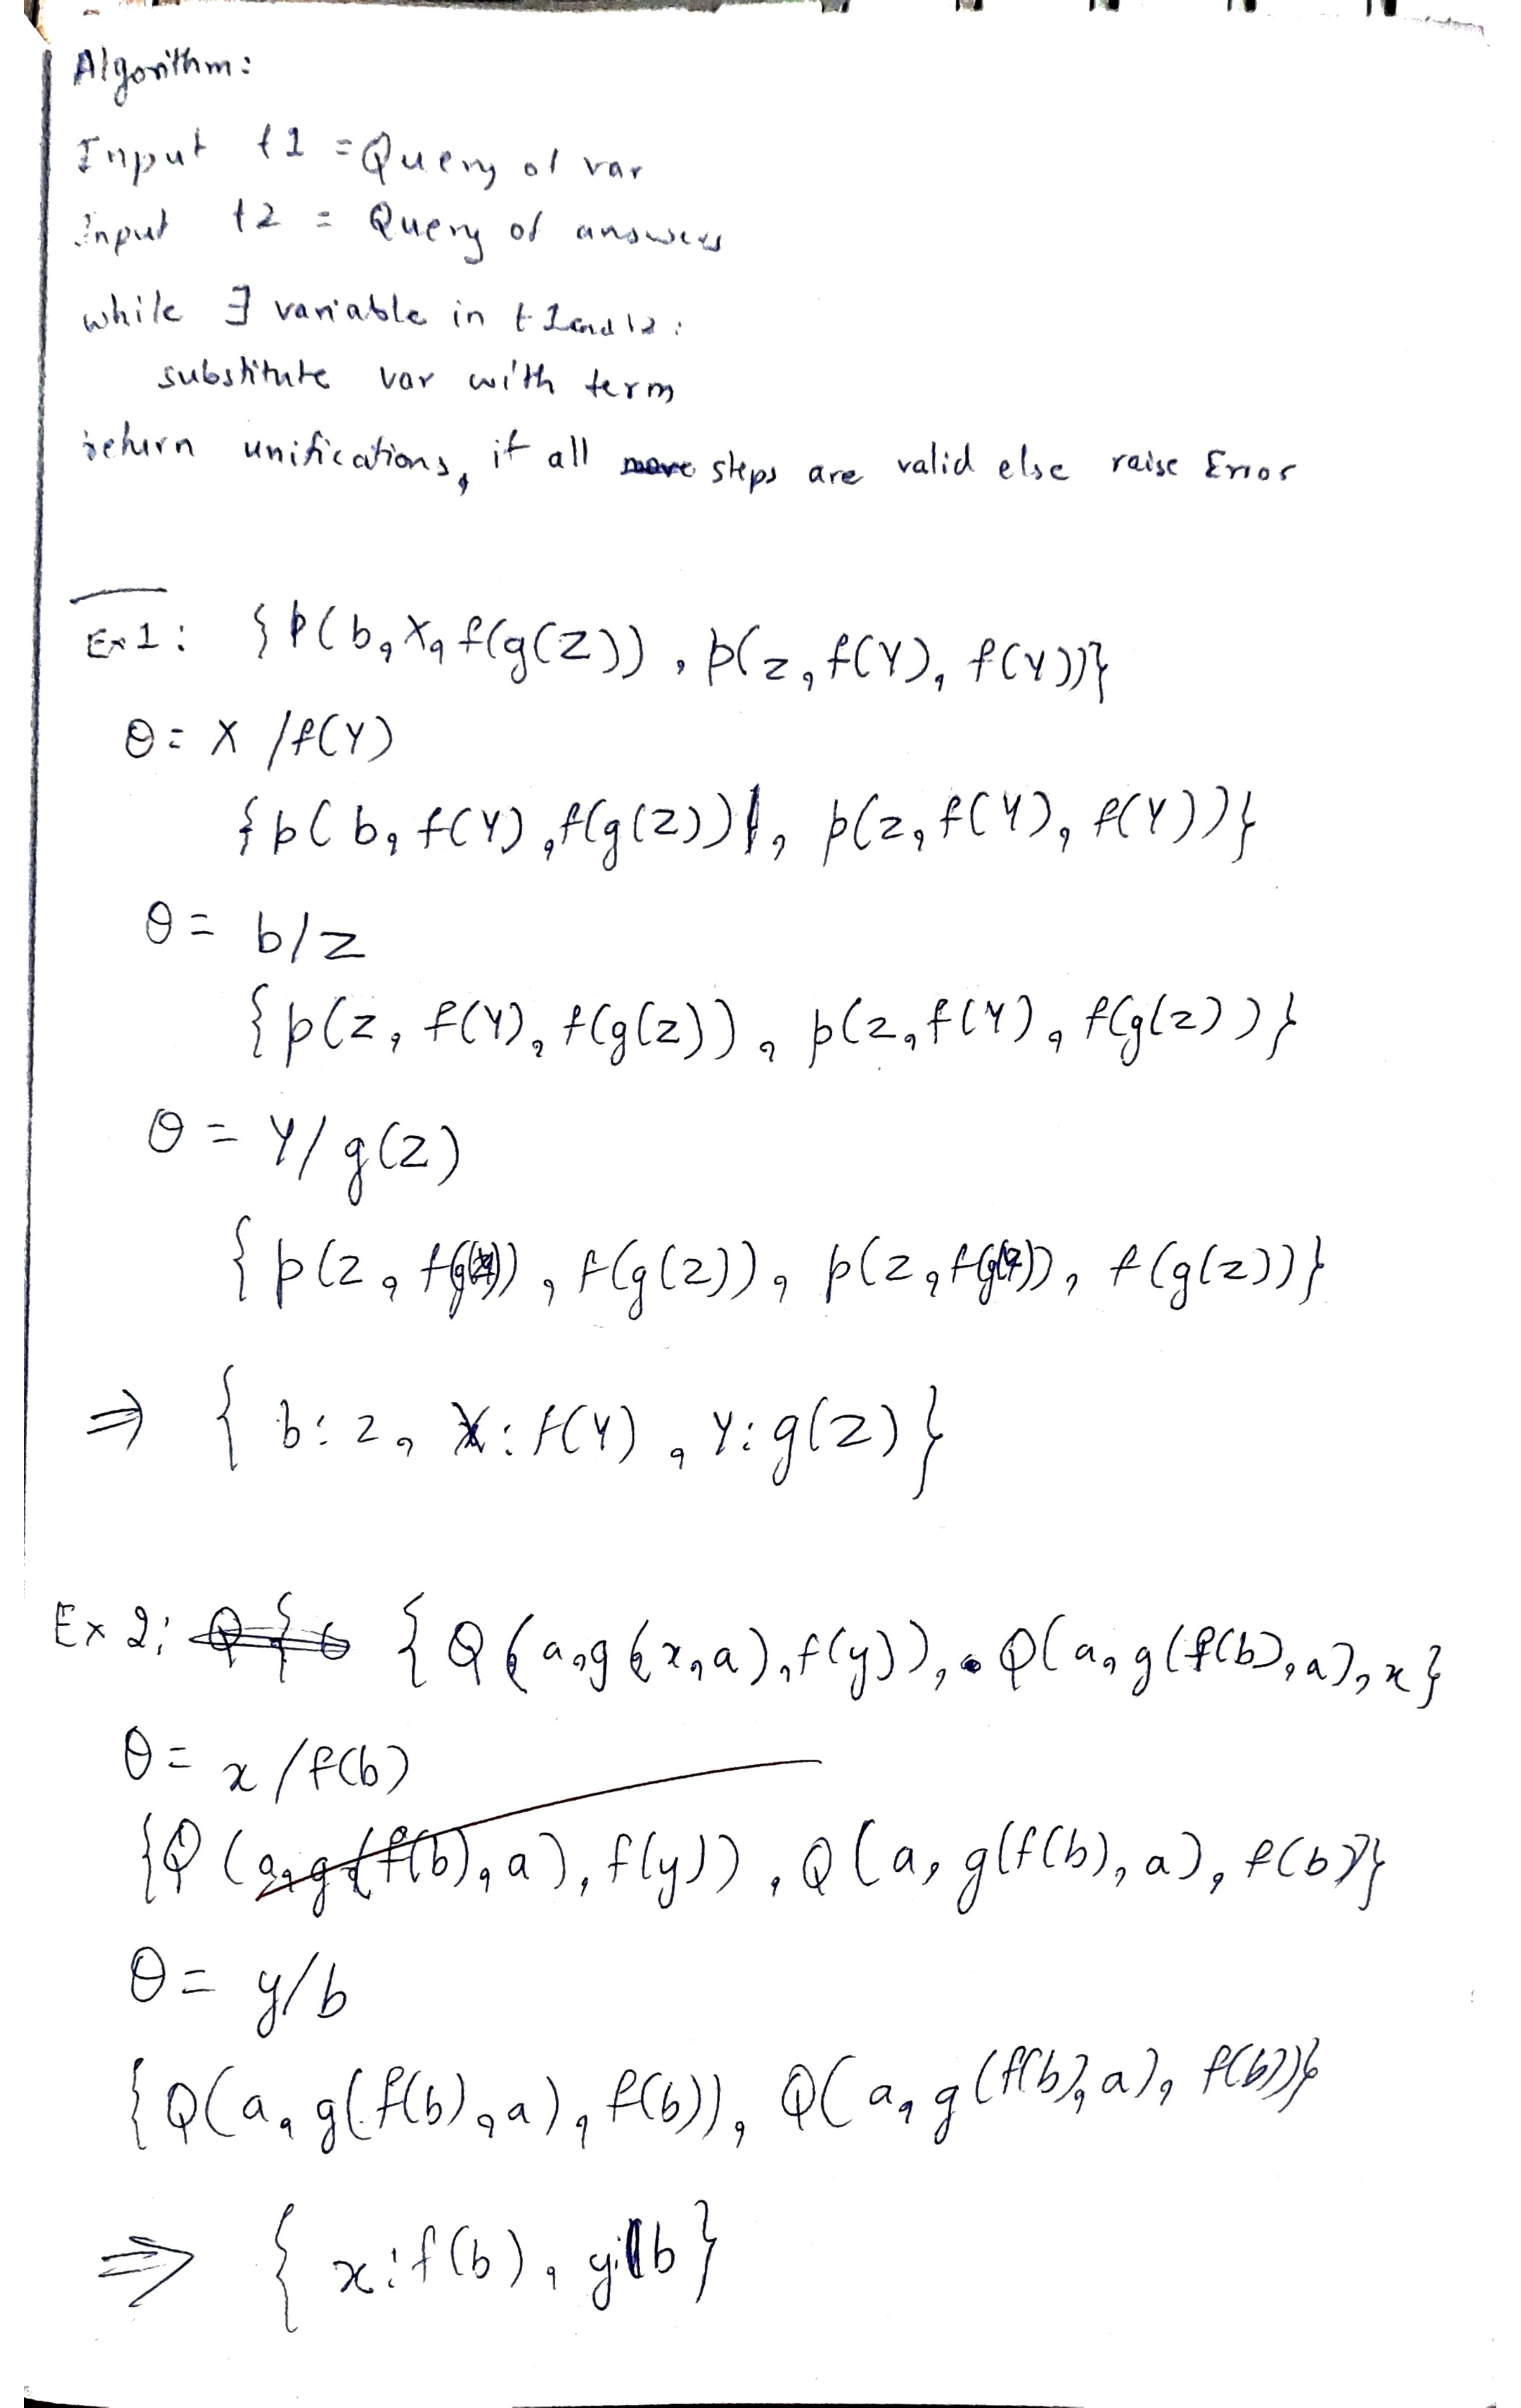 Algorithm:
Input t1 = Query of var
Input t2 = Query of answers
while ∃ variable in t1 and t2:
substitute var with term
return unifications, if all steps are valid else raise Error
Ex1: {p(b, X, f(g(Z)), p(z, f(Y), f(Y))}
θ= X /f(Y)
{p(b, f(Y), f(g(z)), p(z, f(Y), f(Y))}
θ= b/z
{p(z, f(Y), f(g(z)), p(z, f(Y), f(g(z))}
θ= Y/g(z)
{p(z, f(g(z)), f(g(z)), p(z, f(g(z)), f(g(z))}
⇒ { b:z, X:f(Y), Y:g(z)}
Ex 2: {Q(a, g(x, a), f(y)), Q(a, g(f(b), a), x}
θ= x/f(b)
{Q(a, g(f(b), a), f(y)), Q(a, g(f(b), a), f(b)}
θ= y/b
{Q(a, g(f(b), a), f(b)), Q(a, g(f(b), a), f(b))}
⇒ { x:f(b), y:b}